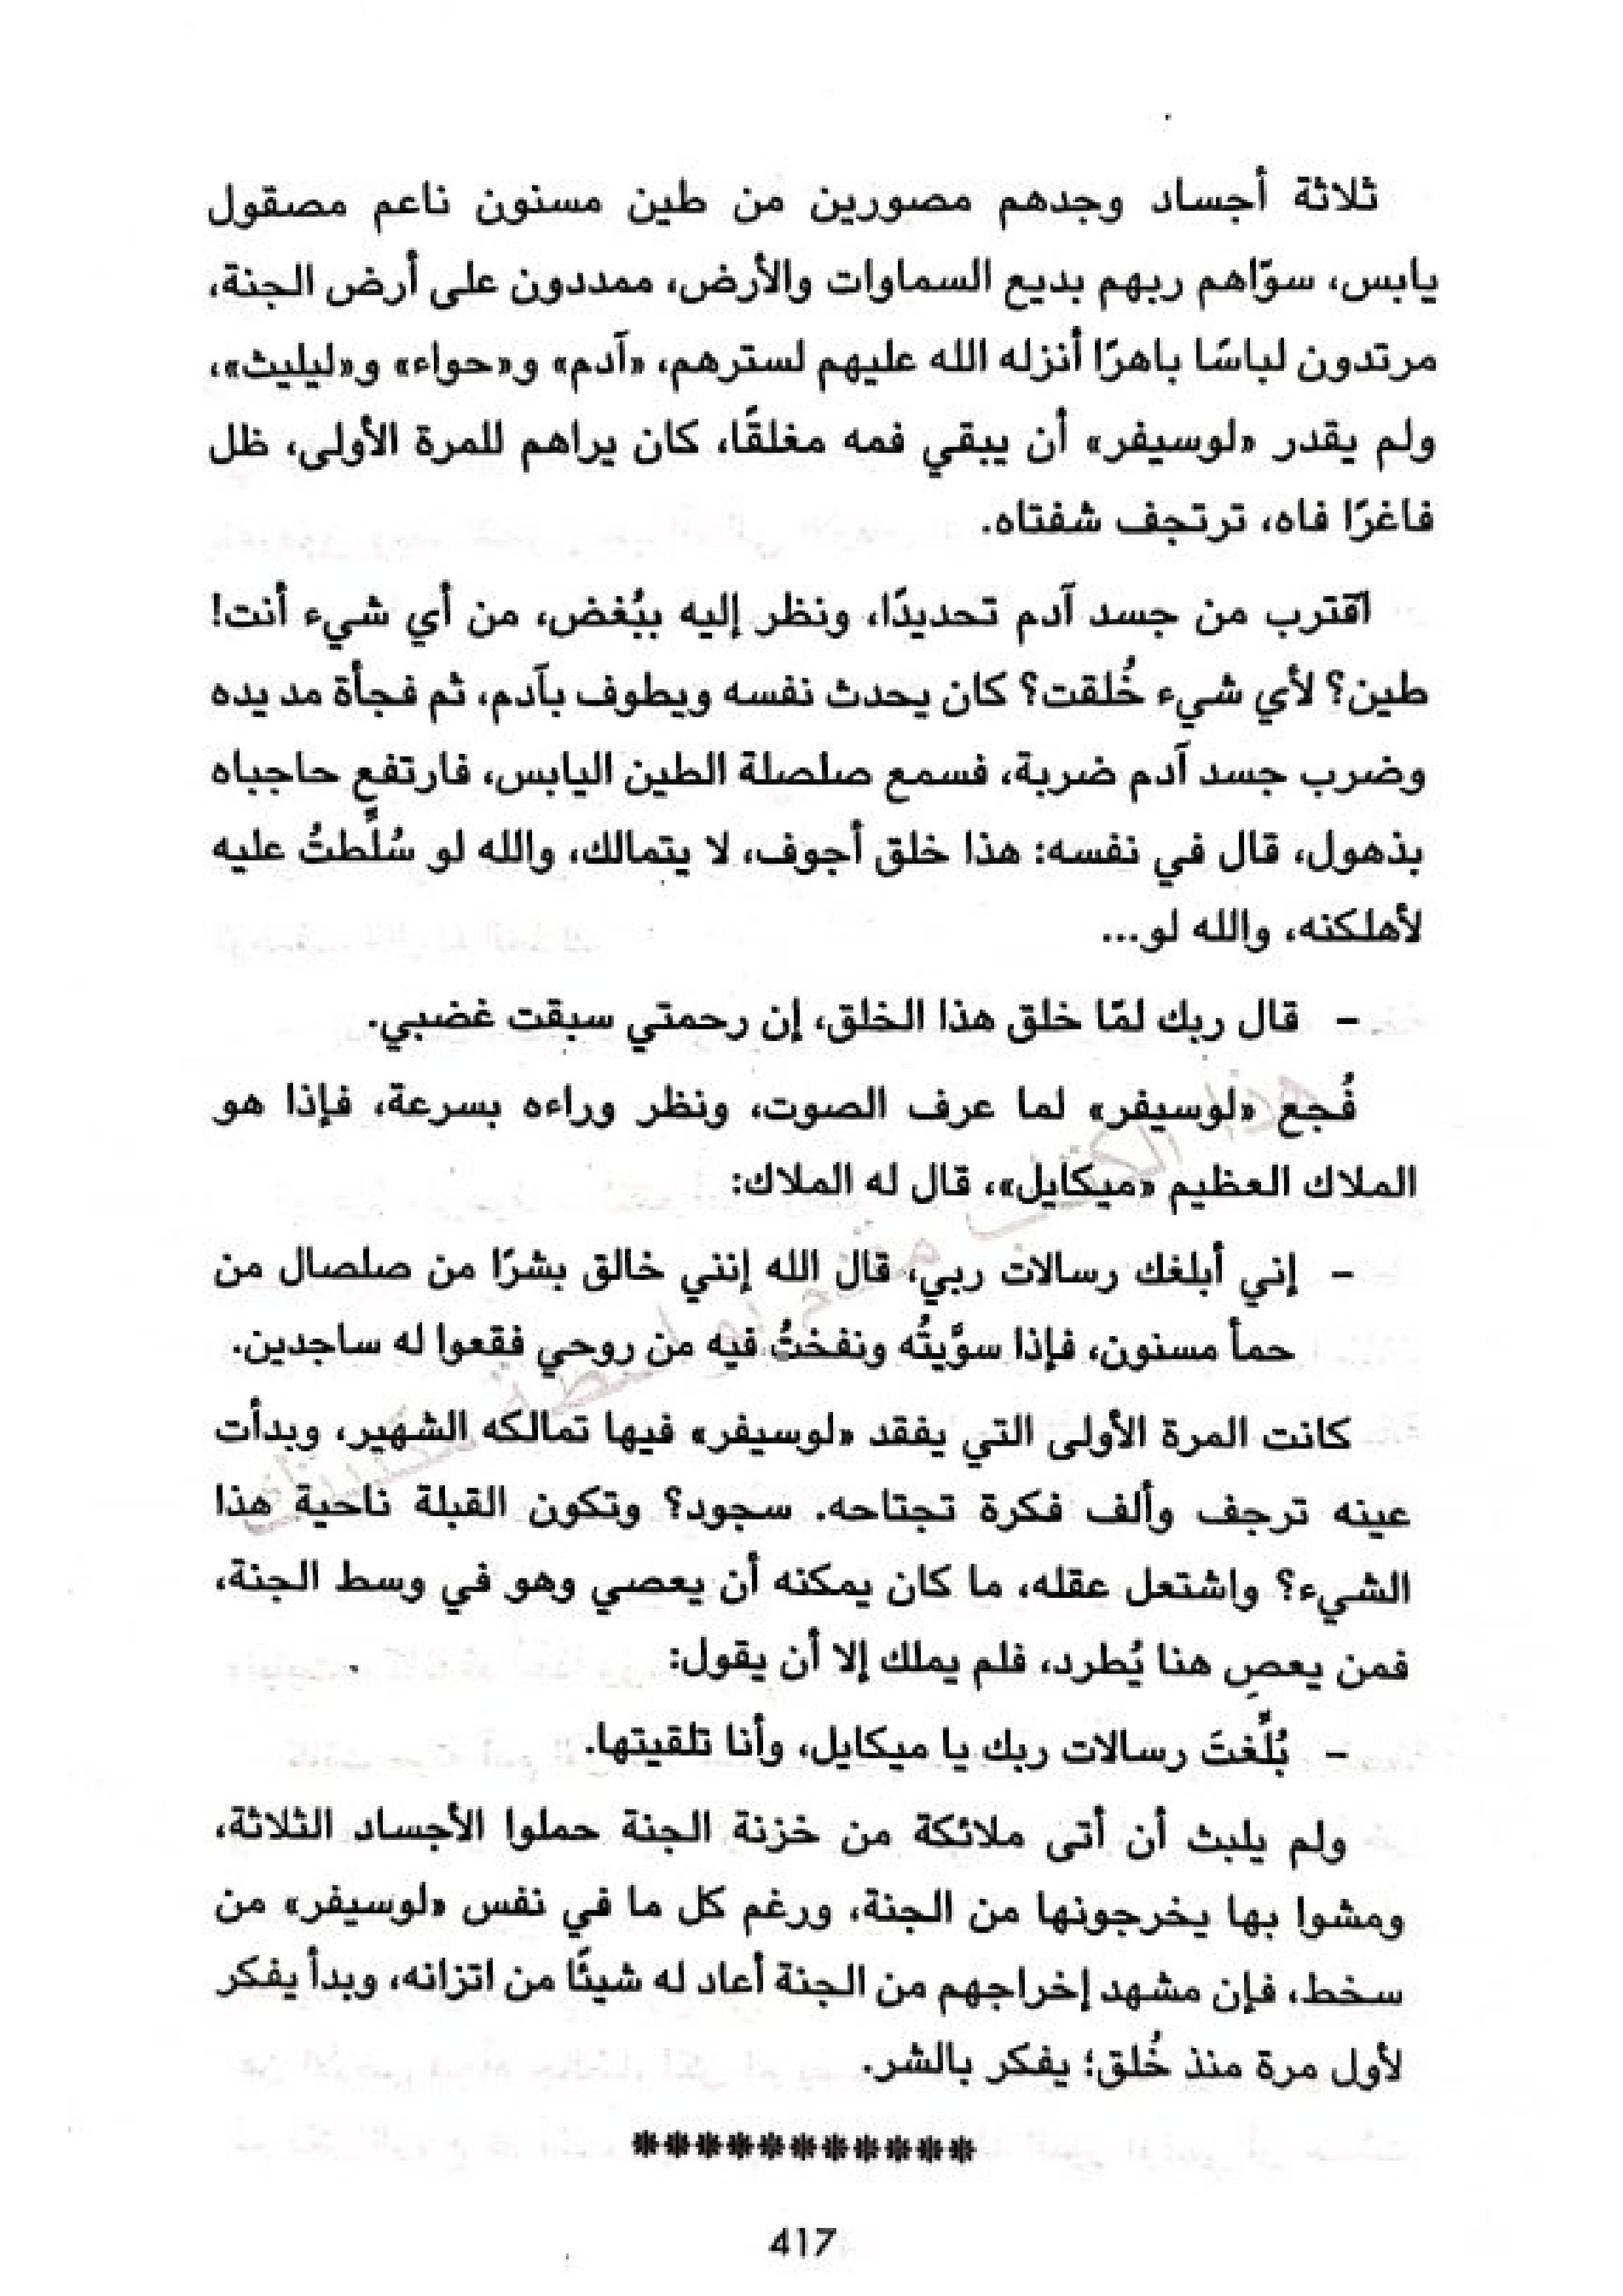 ثلاثة أجساد وجدهم مصورين من طين مسنون ناعم مصقول
يابس، سوّاهم ربهم بديع السماوات والأرض، ممددون على أرض الجنة،
مرتدون لباسًا باهرًا أنزله الله عليهم لسترهم، «آدم» و«حواء» و«ليليث»،
ولم يقدر «لوسيفر» أن يبقي فمه مغلقًا، كان يراهم للمرة الأولى، ظل
فاغرًا فاه، ترتجف شفتاه.
اقترب من جسد آدم تحديدًا، ونظر إليه ببُغض، من أي شيء أنت!
طين؟ لأي شيء خُلقت؟ كان يحدث نفسه ويطوف بآدم، ثم فجأة مد يده
وضرب جسد آدم ضربة، فسمع صلصلة الطين اليابس، فارتفع حاجباه
بذهول، قال في نفسه: هذا خلق أجوف، لا يتمالك، والله لو سُلِّطتُ عليه
لأهلكنه، والله لو...
- قال ربك لمّا خلق هذا الخلق، إن رحمتي سبقت غضبي.
فُجع «لوسيفر» لما عرف الصوت، ونظر وراءه بسرعة، فإذا هو
الملاك العظيم «ميكايل»، قال له الملاك:
- إني أبلغك رسالات ربي، قال الله إنني خالق بشرًا من صلصال من
حمأ مسنون، فإذا سوَّيتُه ونفختُ فيه من روحي فقعوا له ساجدين.
كانت المرة الأولى التي يفقد «لوسيفر» فيها تمالكه الشهير، وبدأت
عينه ترجف وألف فكرة تجتاحه. سجود؟ وتكون القبلة ناحية هذا
الشيء؟ واشتعل عقله، ما كان يمكنه أن يعصي وهو في وسط الجنة،
فمن يعصِ هنا يُطرد، فلم يملك إلا أن يقول:
- بُلِّغتَ رسالات ربك يا ميكايل، وأنا تلقيتها.
ولم يلبث أن أتى ملائكة من خزنة الجنة حملوا الأجساد الثلاثة،
ومشوا بها يخرجونها من الجنة، ورغم كل ما في نفس «لوسيفر» من
سخط، فإن مشهد إخراجهم من الجنة أعاد له شيئًا من اتزانه، وبدأ يفكر
لأول مرة منذ خُلق؛ يفكر بالشر.
***********
417